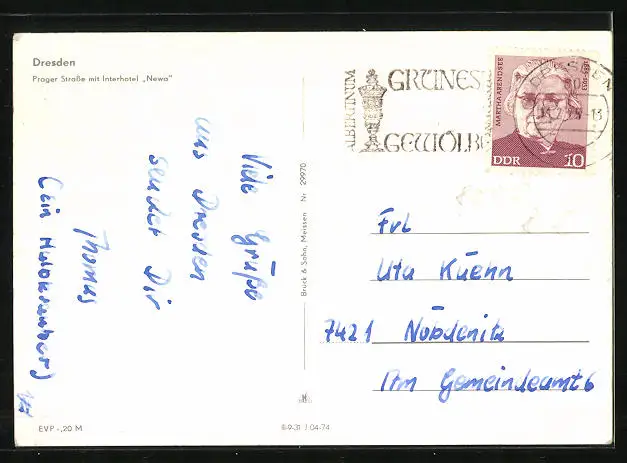 Dresden
Prager Straße mit Interhotel „Newa"
Viele Grüße
aus Dresden
sendet Dir
Thomas
(ein Autobusanber)
EVP -,20 M
Brück & Sohn, Meissen Nr 29970
8-9-31 J 04-74
ALBERTINUM
GRÜNES
GEWÖLBE
DRESDEN
MARTHA ARENDSEE
1885-1953
DDR
10
Frl
Uta Kuehn
7421 Nöbdenitz
Am Gemeindeamt 6